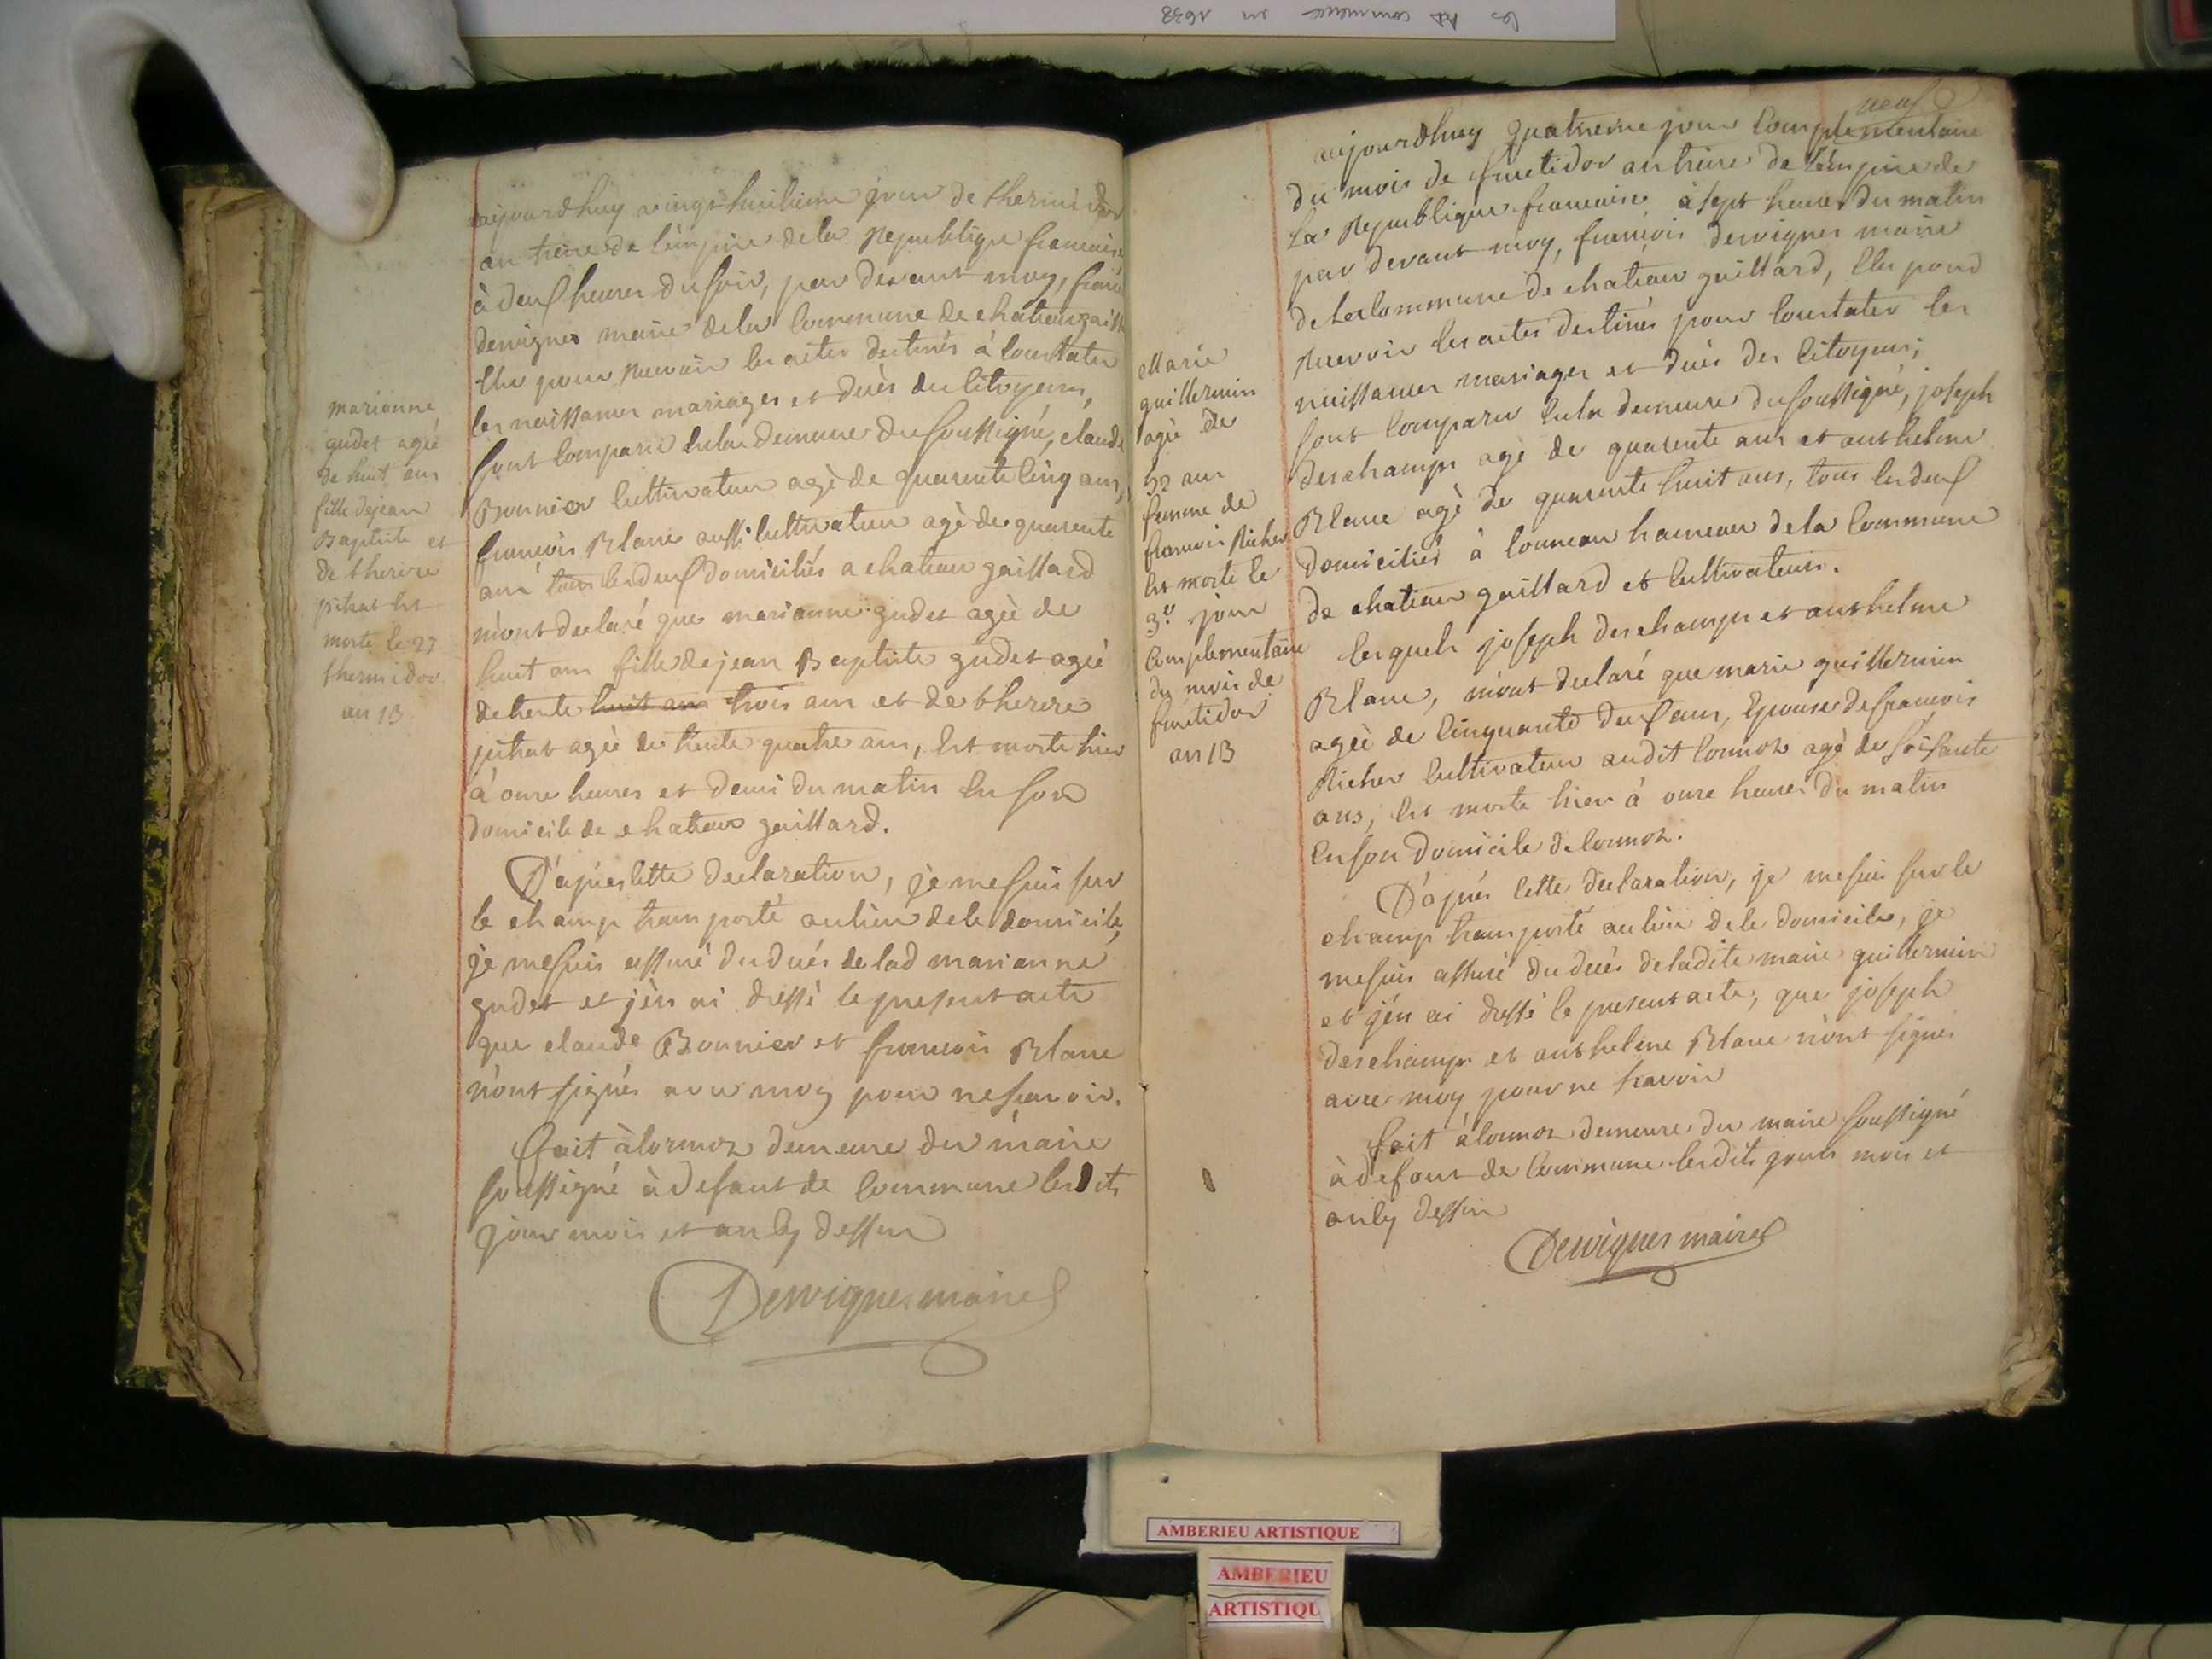 les commence en 1638
marianne
gudet agée
de huit ans
fille de jean
Baptiste et
de therese
pitrat est
morte le 27
thermidor
an 13
aujourdhuy vingt huitieme jour de thermidor
an treize de l'émpire de la Republique francaise
à deux heures du soir, par devant moy, francois
dervignes maire de la Commune de chateau gaillard
Elu pour recevoir les actes destinés à Constater
les naissances mariages et décès des Citoyens,
sont Comparu En la demeure du soussigné, claude
Bonnier Cultivateur agé de quarente Cinq ans,
francois Blanc aussi Cultivateur agé de quarente
ans tous les deux domiciliés a chateau gaillard
m'ont declaré que marianne gudet agée de
huit ans fille de jean Baptiste gudet agée
de trente huit ans trois ans et de therese
pitrat agée de trente quatre ans, Est morte hier
à onze heures et demi du matin En son
domicile de chateau gaillard.
D'aprés Cette declaration, je me suis sur
le champ transporté au lieu de Ce domicile,
je me suis assuré du décès de lad marianne
gudet et j'en ai dressé le present acte
que claude Bonnier et francois Blanc
n'ont signés avec moy pour ne scavoir.
fait à Cormoz demeure du maire
soussigné à defaut de Commune lesdits
jour mois et an Cy dessus
Dervignes maire
neuf
Marie
guillermin
agée de
52 ans
femme de
francois Richer
Est morte le
3e jour
Complementaire
du mois de
fructidor
an 13
aujourdhuy quatrieme jour Complementaire
du mois de fructidor an treize de l'émpire de
la Republique francaise à sept heures du matin
par devant moy, francois dervignes maire
de La Commune de chateau gaillard, Elu pour
Recevoir les actes destinés pour Constater les
naissances mariages et décès des Citoyens;
sont Comparu En la demeure du soussigné, joseph
deschamps agé de quarente ans et anthelme
Blanc agé de quarente huit ans, tous les deux
domiciliés à Cormoz hameau de la Commune
de chateau gaillard et Cultivateurs.
lesquels joseph deschamps et anthelme
Blanc, m'ont declaré que marie guillermin
agée de Cinquante deux ans, Epouse de francois
Richer Cultivateur audit Cormoz agé de soisante
ans, Est morte hier à onze heures du matin
En son domicile de Cormoz.
D'aprés Cette declaration, je me suis sur le
champ transporté au lieu de Ce domicile, je
me suis assuré du décès de ladite marie guillermin
et j'en ai dressé le present acte, que joseph
deschamps et anthelme Blanc n'ont signés
avec moy pour ne scavoir
fait à Cormoz demeure du maire soussigné
à defaut de Commune lesdits jour mois et
an Cy dessus
Dervignes maire
AMBERIEU ARTISTIQUE
AMBERIEU
ARTISTIQU